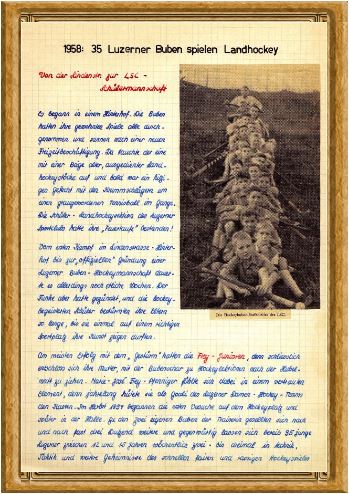 1958: 35 Luzerner Buben spielen Landhockey
Von der Lindenstr. zur LSC -
Schülermannschaft
Es begann in einem Hinterhof. Die Buben
hatten ihre gewohnten Spiele alle durch-
genommen und sannen nach einer neuen
Freizeitbeschäftigung. Da tauchte der eine
mit einer Beige alter, ausgedienter Land-
hockeystöcke auf und bald war ein hitzi-
ges Gefecht mit den Krummschlägern um
einen graugewordenen Tennisball im Gange.
Die Schüler - Landhockeysektion des Luzerner
Sportclubs hatte ihre "Feuertaufe" bestanden!
Dem ersten Kampf im Lindenstrasse - Hinter-
hof bis zur "offiziellen" Gründung einer
Luzerner Buben - Hockeymannschaft dauer-
te es allerdings noch etliche Wochen. Der
Funke aber hatte gezündet, und die hockey-
begeisterten Schüler bestürmten ihre Eltern
so lange, bis sie einmal auf einem richtigen
Sportplatz ihre Kunst zeigen durften.
Die Hockeybuben
des LSC.
Am meisten Erfolg mit dem "Gestürm" hatten die Frey - Junioren, denn schliesslich
entschloss sich ihre Mutter, mit der Bubenschar zu
nach der Hubel-
matt zu ziehen.
Frey - Pfenniger fühlte sich dabei in einem vertrauten
Element, denn jahrelang hütete sie als Goali des Luzerner Damen - Hockey - Teams
den Kasten. Im Herbst 1957 begannen die ersten Versuche auf dem Hockeyplatz und
später in der Halle. Zu den zwei eigenen Buben der Trainerin gesellten sich nach
und nach fast drei Dutzend weitere und gegenwärtig lassen sich bereits 35 junge
Luzerner zwischen 12 und 15 Jahren wöchentlich zwei - bis dreimal in Technik,
Taktik und weitere Geheimnisse des schnellen, fairen und rassigen Hockeyspieles